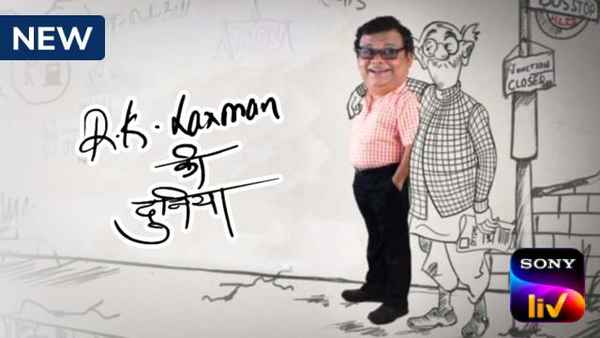 NEW
R.K. Laxman
की
दुनिया
BUS STOP
JUNCTION
CLOSED
SONY
liv